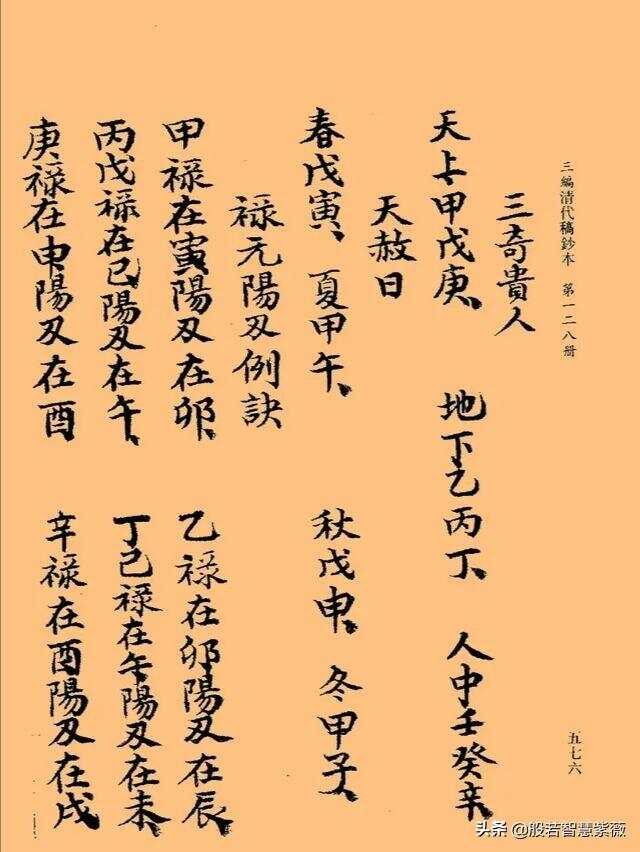 三編清代稿鈔本 第一二八冊
五七六
三奇貴人
天上甲戊庚、 地下乙丙丁、 人中壬癸辛、
天赦日
春戊寅、 夏甲午、 秋戊申、 冬甲子、
禄元陽刄例訣
甲禄在寅陽刄在卯、 乙禄在卯陽刄在辰
丙戊禄在巳陽刄在午、 丁己禄在午陽刄在未
庚禄在申陽刄在酉 辛禄在酉陽刄在戌
头条 @般若智慧紫薇